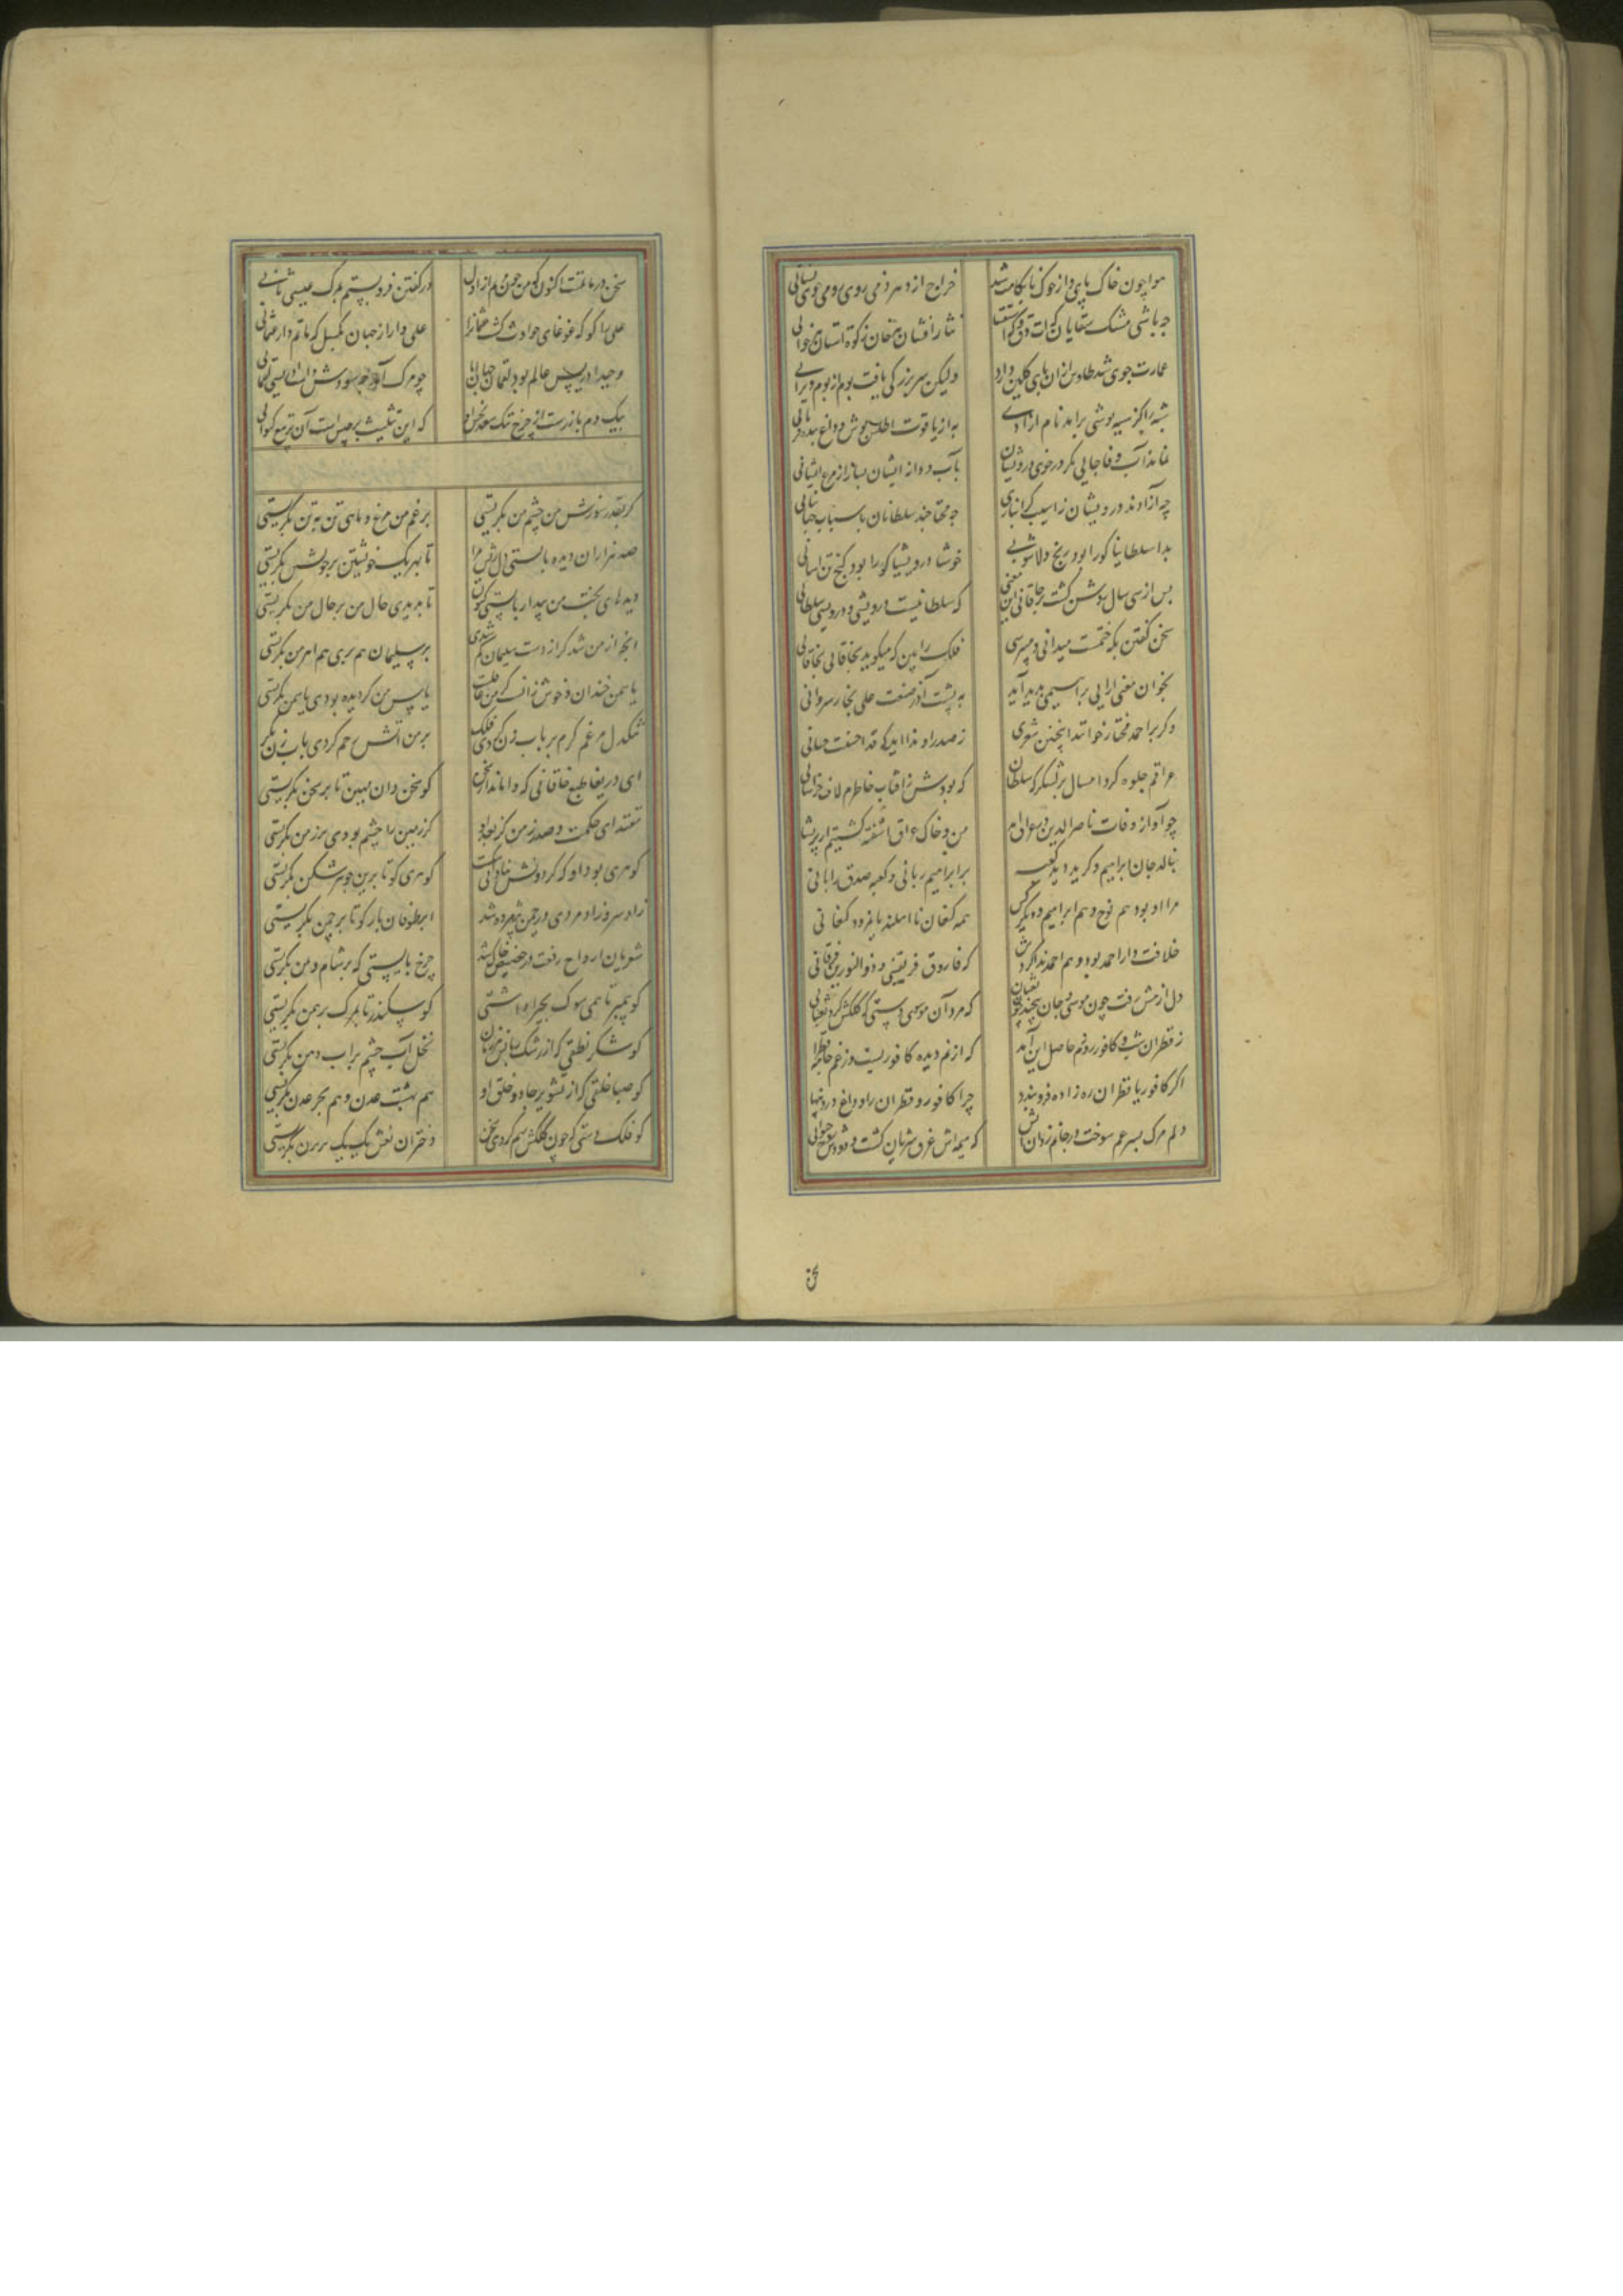 هوا چون خاک پای و از خوک ناکامت شد خراج از دهر ذمی روی رومی خوی بستانی
چه باشی مشک سقایان گهت دق و گه استسقا نثار افشان هر خوان و زکوة استان هر خوانی
عمارت جوی شد طاوس ازان پای گلین دارد ولیکن سر بزرگی یافت بوم از بوم ویرانی
شبه را گر سیه پوشی برآید نام آزادی به از یاقوت اطلس پوش داغ بنده فرمانی
نماند آب وفا جایی مگر در خوی درویشان بآب و دانه ایشان بساز ار مرغ ایشانی
چه آزادند درویشان ز آسیب گرانباری چه محتاجند سلطانان باسباب جهانبانی
بدا سلطانیا کورا بود رنج دل آشوبی خوشا درویشیا کورا بود گنج تن آسانی
پس از سی سال روشن گشت بر خاقانی این معنی که سلطانیست درویشی و درویشی سلطانی
سخن گفتن بکه ختمست میدانی و میپرسی فلک را بین که میگوید بخاقانی بخاقانی
بخوان معنی آرایی براهیمی پدید آید ز پشت آذر صنعت علی نجار شروانی
وگر بر احمد مختار خوانند اینچنین شعری ز صدر او ندا آید که قد احسنت حسانی
عراقم جلوه کرد امسال بر لشکرگه سلطان که بودش ز آفتاب خاطرم لاف خراسانی
چو آواز وفات ناصر الدین در عراق آمد من و خاک عراق آشفته گشتیم از پریشانی
بنالد جان ابراهیم و گرید دیده کعبه بر ابراهیم ربانی و کعبه صدق را بانی
مرا او بود هم نوح و هم ابراهیم و دیگر کس همه کنعان نااهلند یا نمرود کنعانی
خلافت دار احمد بود و هم احمد ندا کردش که فاروق فریقینی و ذو النورین فرقانی
دل از من رفت چون موسی و جان پیچید چون ثعبان که مرد آن موسی دستی که کلکش کرد ثعبانی
ز قطران شب و کافور روزم حاصل این آمد که از نم دیده کافوریست وز غم جامه قطرانی
اگر کافور با قطران ره زادن فروبندد چرا کافور و قطران زاد داغ و درد پنهانی
دلم مرگ پسر عم سوخت و در جانم زد آن آتش که هیمه‌اش عرق شریان گشت و دودش روح حیوانی
سخن
سخن در ماتمست اکنون که من چون مریم از اول در گفتن فروبستم بمرگ عیسی ثانی
علی را گو که غوغای حوادث کشت عثمان را علی وار از جهان بگسل که ماتم دار عثمانی
وحید ادریس عالم بود لقمان جهان اما چو مرگ آمد چه سودش داشت ادریسی و لقمانی
بیک دم باز رست از چرخ تنگ سعد بخش او که این تثلیث برجیس است آن تربیع کیوانی
گر بقدر سوزش من چشم من بگریستی بر غم من مرغ و ماهی تن به تن بگریستی
صد هزاران دیده بایستی دل ریش مرا تا بهر یک خویشتن بر خویشتن بگریستی
دیده‌های بخت من بیدار بایستی کنون تا بدیدی حال من بر حال من بگریستی
آنچه از من شد گر از دست سلیمان گم شدی بر سلیمان هم پری هم اهرمن بگریستی
یاسمن خندان و خوش زانست کز من غافلست یاسمن گر دیده بودی یاسمن بگریستی
تنگدل مرغم گرم بر باب زن کردی فلک بر من آتش رحم کردی باب زن بگریستی
ای دریغا طبع خاقانی که واماند از سخن کو سخن دان مهین تا بر سخن بگریستی
مقتدای حکمت و صدر زمن کز بعد او گر زمین را چشم بودی بر زمن بگریستی
گوهری بود او که گردونش بنادانی شکست گوهری کو تا برین گوهر شکن بگریستی
زاد سرو زاد مردی در چمن پژمرده شد ابر طوفان بار کو تا بر چمن بگریستی
شعریان ارواح رفت در حضیض خاک شد چرخ بایستی که بر شام و یمن بگریستی
کو پیمبر تا همی سوگ بحیرا داشتی کو سکندر تا بمرگ برهمن بگریستی
کو شکر نطقی که از رشک زبانش هر زمان نخل آب چشم بر آب دهن بگریستی
کو صبا خلقی که از تشویر جاه و خلق او هم بهشت عدن و هم بحر عدن بگریستی
کو فلک دستی که چون کلکش بهم کردی سخن دختران نعش یک یک بر پرن بگریستی